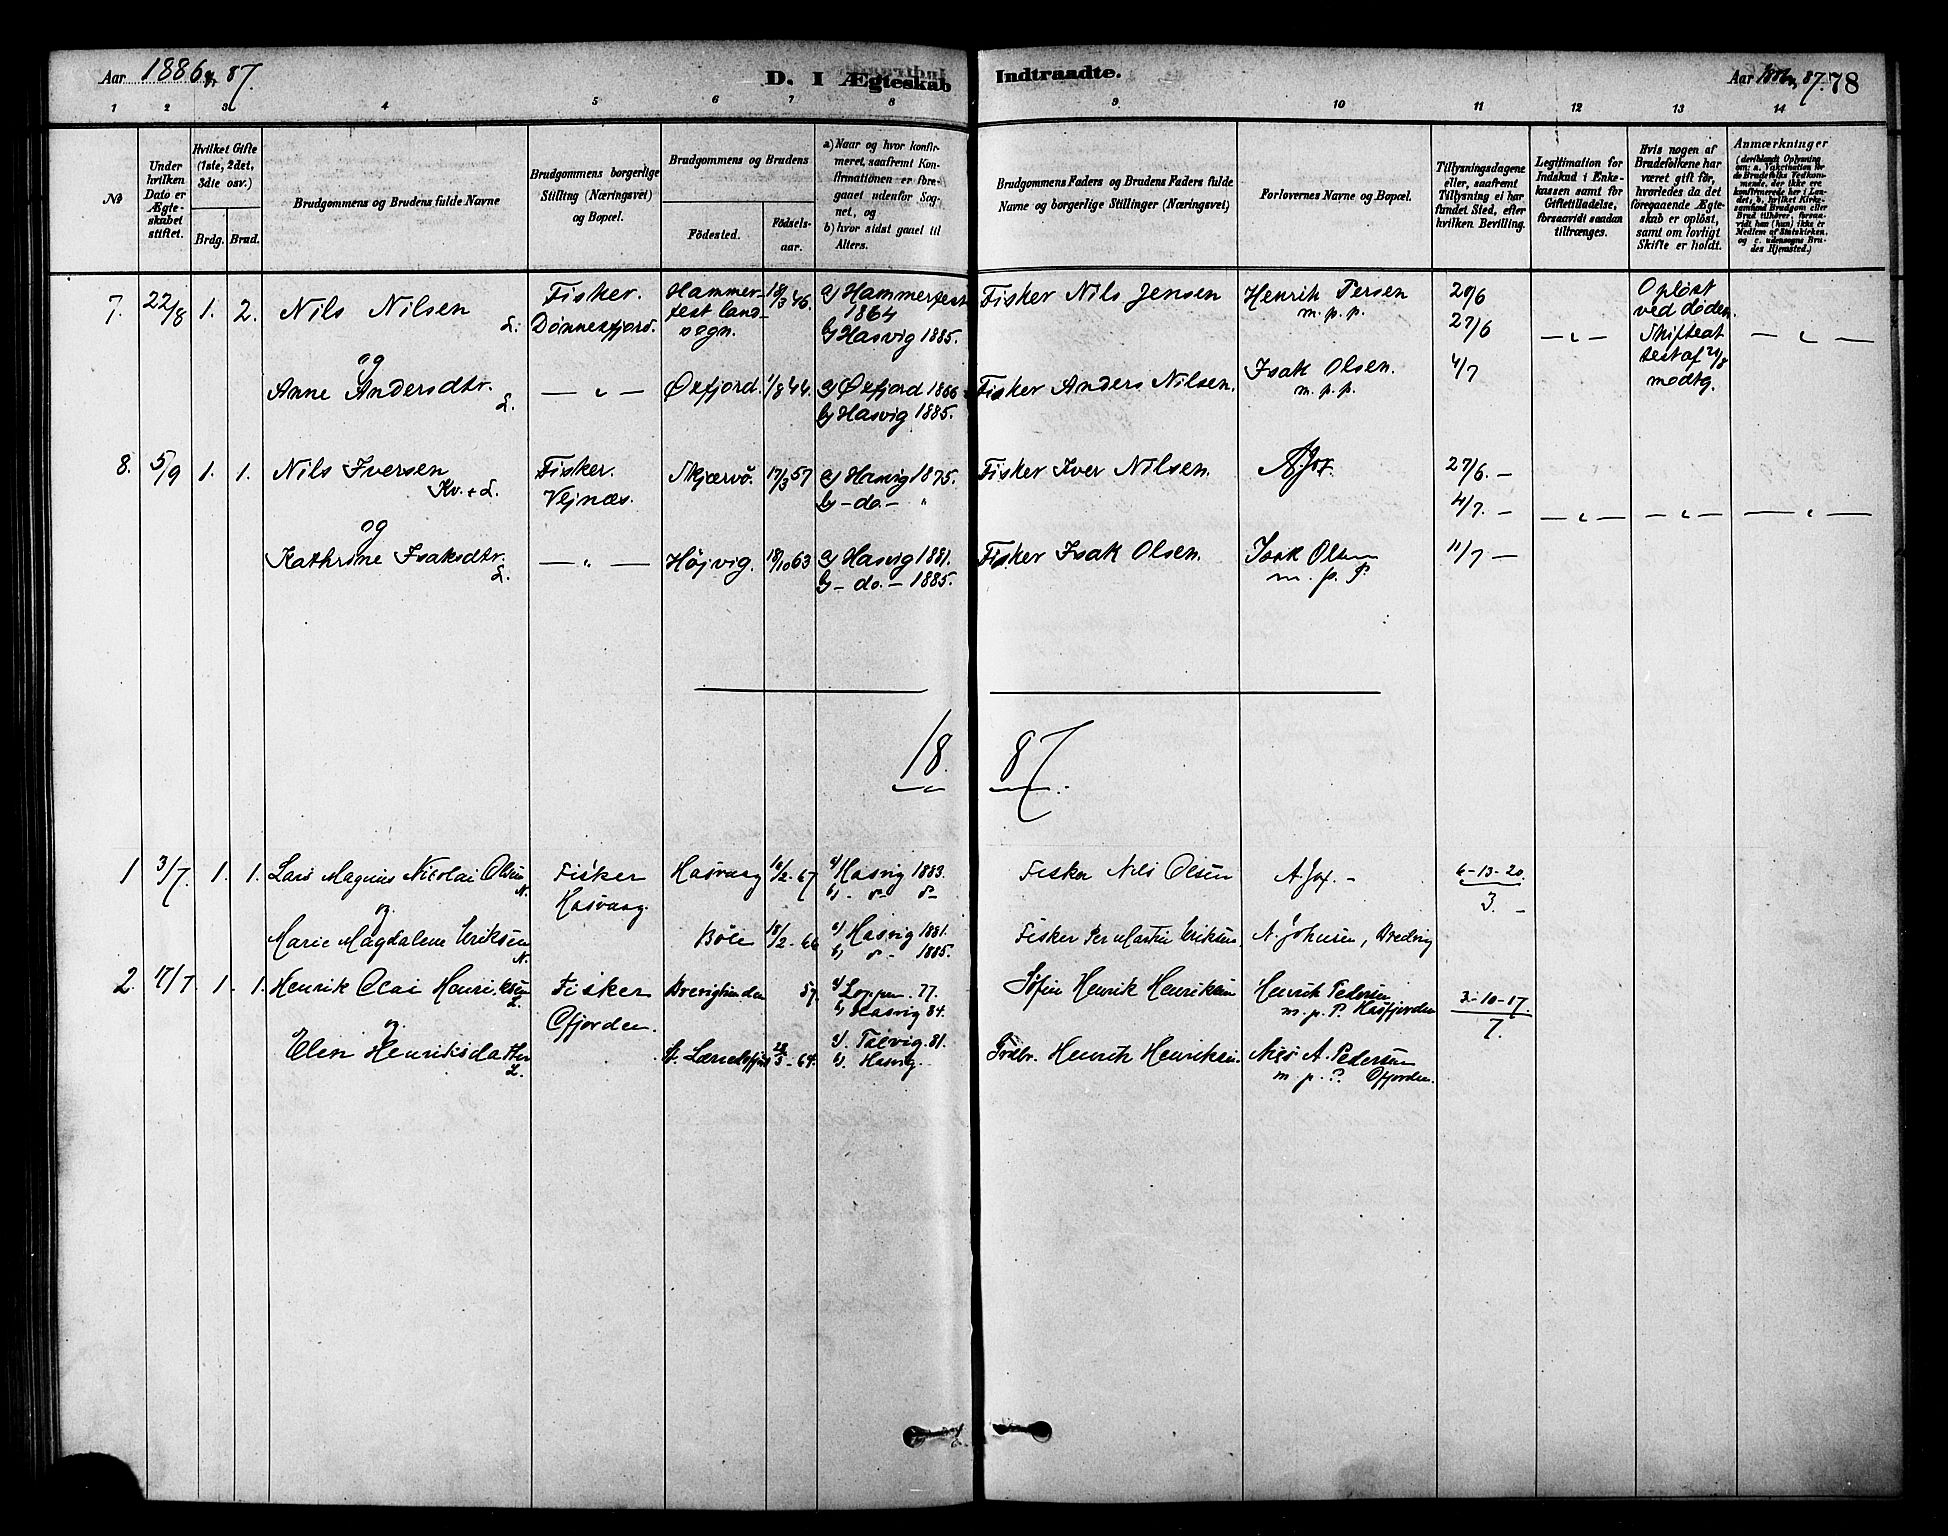 Aar 1886 & 87.
D. I Ægteskab
Indtraadte.
Aar 1886 & 87. 78
1 2 3 4 5 6 7 8 9 10 11 12 13 14
No
Under hvilken Dato er Ægteskabet stiftet.
Hvilket Gifte (1ste, 2det, 3die osv.)
Brdg. Brud.
Brudgommens og Brudens fulde Navne
Brudgommens borgerlige Stilling (Næringsvei) og Bopæl.
Brudgommens og Brudens
Födested.
Födselsaar.
a) Naar og hvor konfirmeret, saafremt Konfirmationen er foregaaet udenfor Sognet, og
b) hvor sidst gaaet til Alters.
Brudgommens Faders og Brudens Faders fulde Navne og borgerlige Stillinger (Næringsvei)
Forlovernes Navne og Bopæl.
Tillysningsdagene eller, saafremt Tillysning ei har fundet Sted, efter hvilken Bevilling.
Legitimation for Indskud i Enkekassen samt for Giftetilladelse, forsaavidt saadan tiltrænges.
Hvis nogen af Brudefolkene har været gift för, hvorledes da det foregaaende Ægteskab er oplöst, samt om lovligt Skifte er holdt.
Anmærkninger
7. 22/8 1. 2. Nils Nilsen L.
Fisker. Dønnesfjord.
Hammerfest landsogn. 18/3 46.
a) Hammerfest 1864
b) Hasvig 1885.
Fisker Nils Jensen
Henrik Persen m. p. p.
20/6
27/6
4/7
Opløst ved døden. Skifteattest af 21/8 modtg.
og
Anne Andersdtr. L.
— " —
Øxfjord. 1/8 44.
a) Øxfjord 1866
b) Hasvig 1885.
Fisker Anders Nilsen.
Isak Olsen. m. p. p.
8. 5/9 1. 1. Nils Iversen Kv. + L.
Fisker. Vejnæs.
Skjærvö. 17/3 57
a) Hasvig 1875.
b) – do. – "
Fisker Iver Nilsen.
27/6. –
4/7. –
11/7 –
og
Kathrine Isaksdtr. L.
— " —
Højvig. 18/10 63
a) Hasvig 1881.
b) – do. – 1885.
Fisker Isak Olsen.
Isak Olsen m. p. P.
18 87
1 3/7. 1. 1. Lars Magnus Nicolai Olsen N.
Fisker Hasvaag.
Hasvaag 67
a) Hasvig 1883.
Fisker Nils Olsen
6-13-20.
3. –
og
Marie Magdalene Eriksen N.
18/2 - 66
a) Hasvig 1881.
b) 1885.
Fisker Per Martin Eriksen.
A. Johnsen,
2. 17/7 1. 1. Henrik Olai Henriksen L.
Fisker Ofjorden.
57.
a) Loppen. 77.
b) Hasvig 84.
Henrik Henriksen
Henrik Pedersen m. p. P. Hasfjorden
3-10-17.
7.
og
Elen Henriksdatter L.
64.
a). Talvig. 81.
b). Hasvig.
Henrik Henriksen.
Nils A. Pedersen m. p. P. Ofjorden.